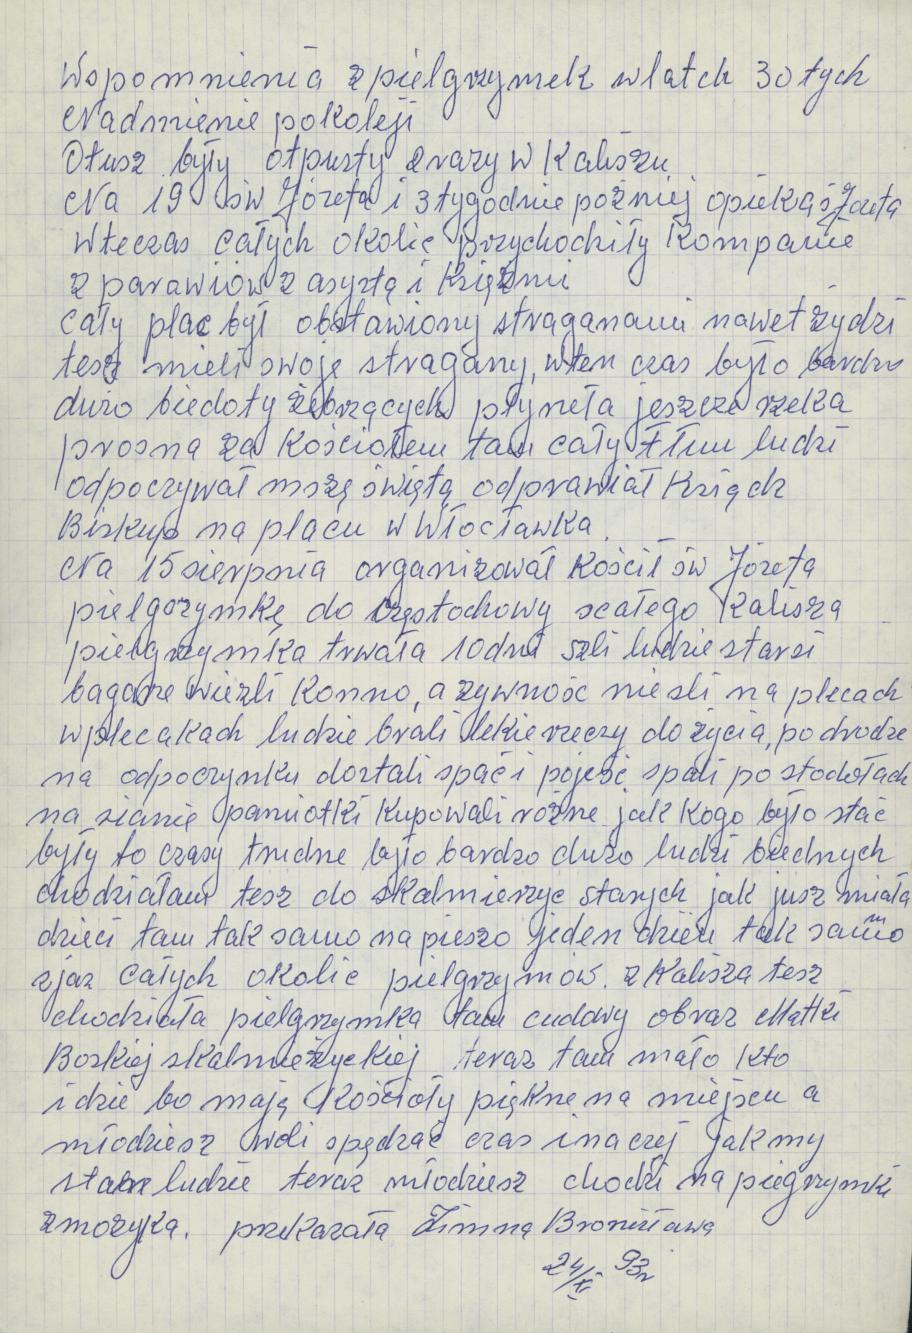 Wspomnienia z pielgrzymek wlatch 30 tych
Nadmienie pokoleji
Otusz były otpusty 2 razy w Kaliszu
Na 19 św Józefa i 3 tygodnie pożniej opieką ś Józefa
Wteczas całych okolic przychodziły Kompanie
z parawiów z asystą i Księżmi
cały plac był obstawiony straganami nawet żydzi
tesz mieli swoję stragany, wten czas było bardzo
dużo biedoty żebrzących płyneła jeszcze rzeka
prosna za Kościołem tam cały tłum ludzi
odpoczywał mszę świętą odprawiał Ksiądz
Biskup na placu w Włocławka.
Na 15 sierpnia organizował Kościł św Józefa
pielgrzymkę do częstochowy scałego Kalisza
pielgrzymka trwała 10 dni szli ludzie starsi
bagarze wieźli Konno, a zywnośc nieśli na plecach
wplecakach ludzie brali lekie rzeczy do życia, po drodze
na odpoczynku dostali spać i pojeść spali po stodołach
na sianie pamiotki Kupowali różne jak Kogo było stać
były to czasy trudne było bardzo dużo ludzi biednych
chodziałam tesz do skalmierzyc starych jak jusz miała
dzieci tam tak samo na pieszo jeden dzień tak samo
zjaz całych okolic pielgrzymów. z Kalisza tesz
chodziała pielgrzymka tam cudowy obraz Matki
Boskiej skalmieżyckiej teraz tam mało kto
idzie bo mają Kościoły piękne na miejscu a
młodziesz woli spędzać czas inaczej jak my
starzy ludzie teraz młodziesz chodzi na piegrzymki
zmozyką. przkazała Zimna Bronisława
24/XI 93r